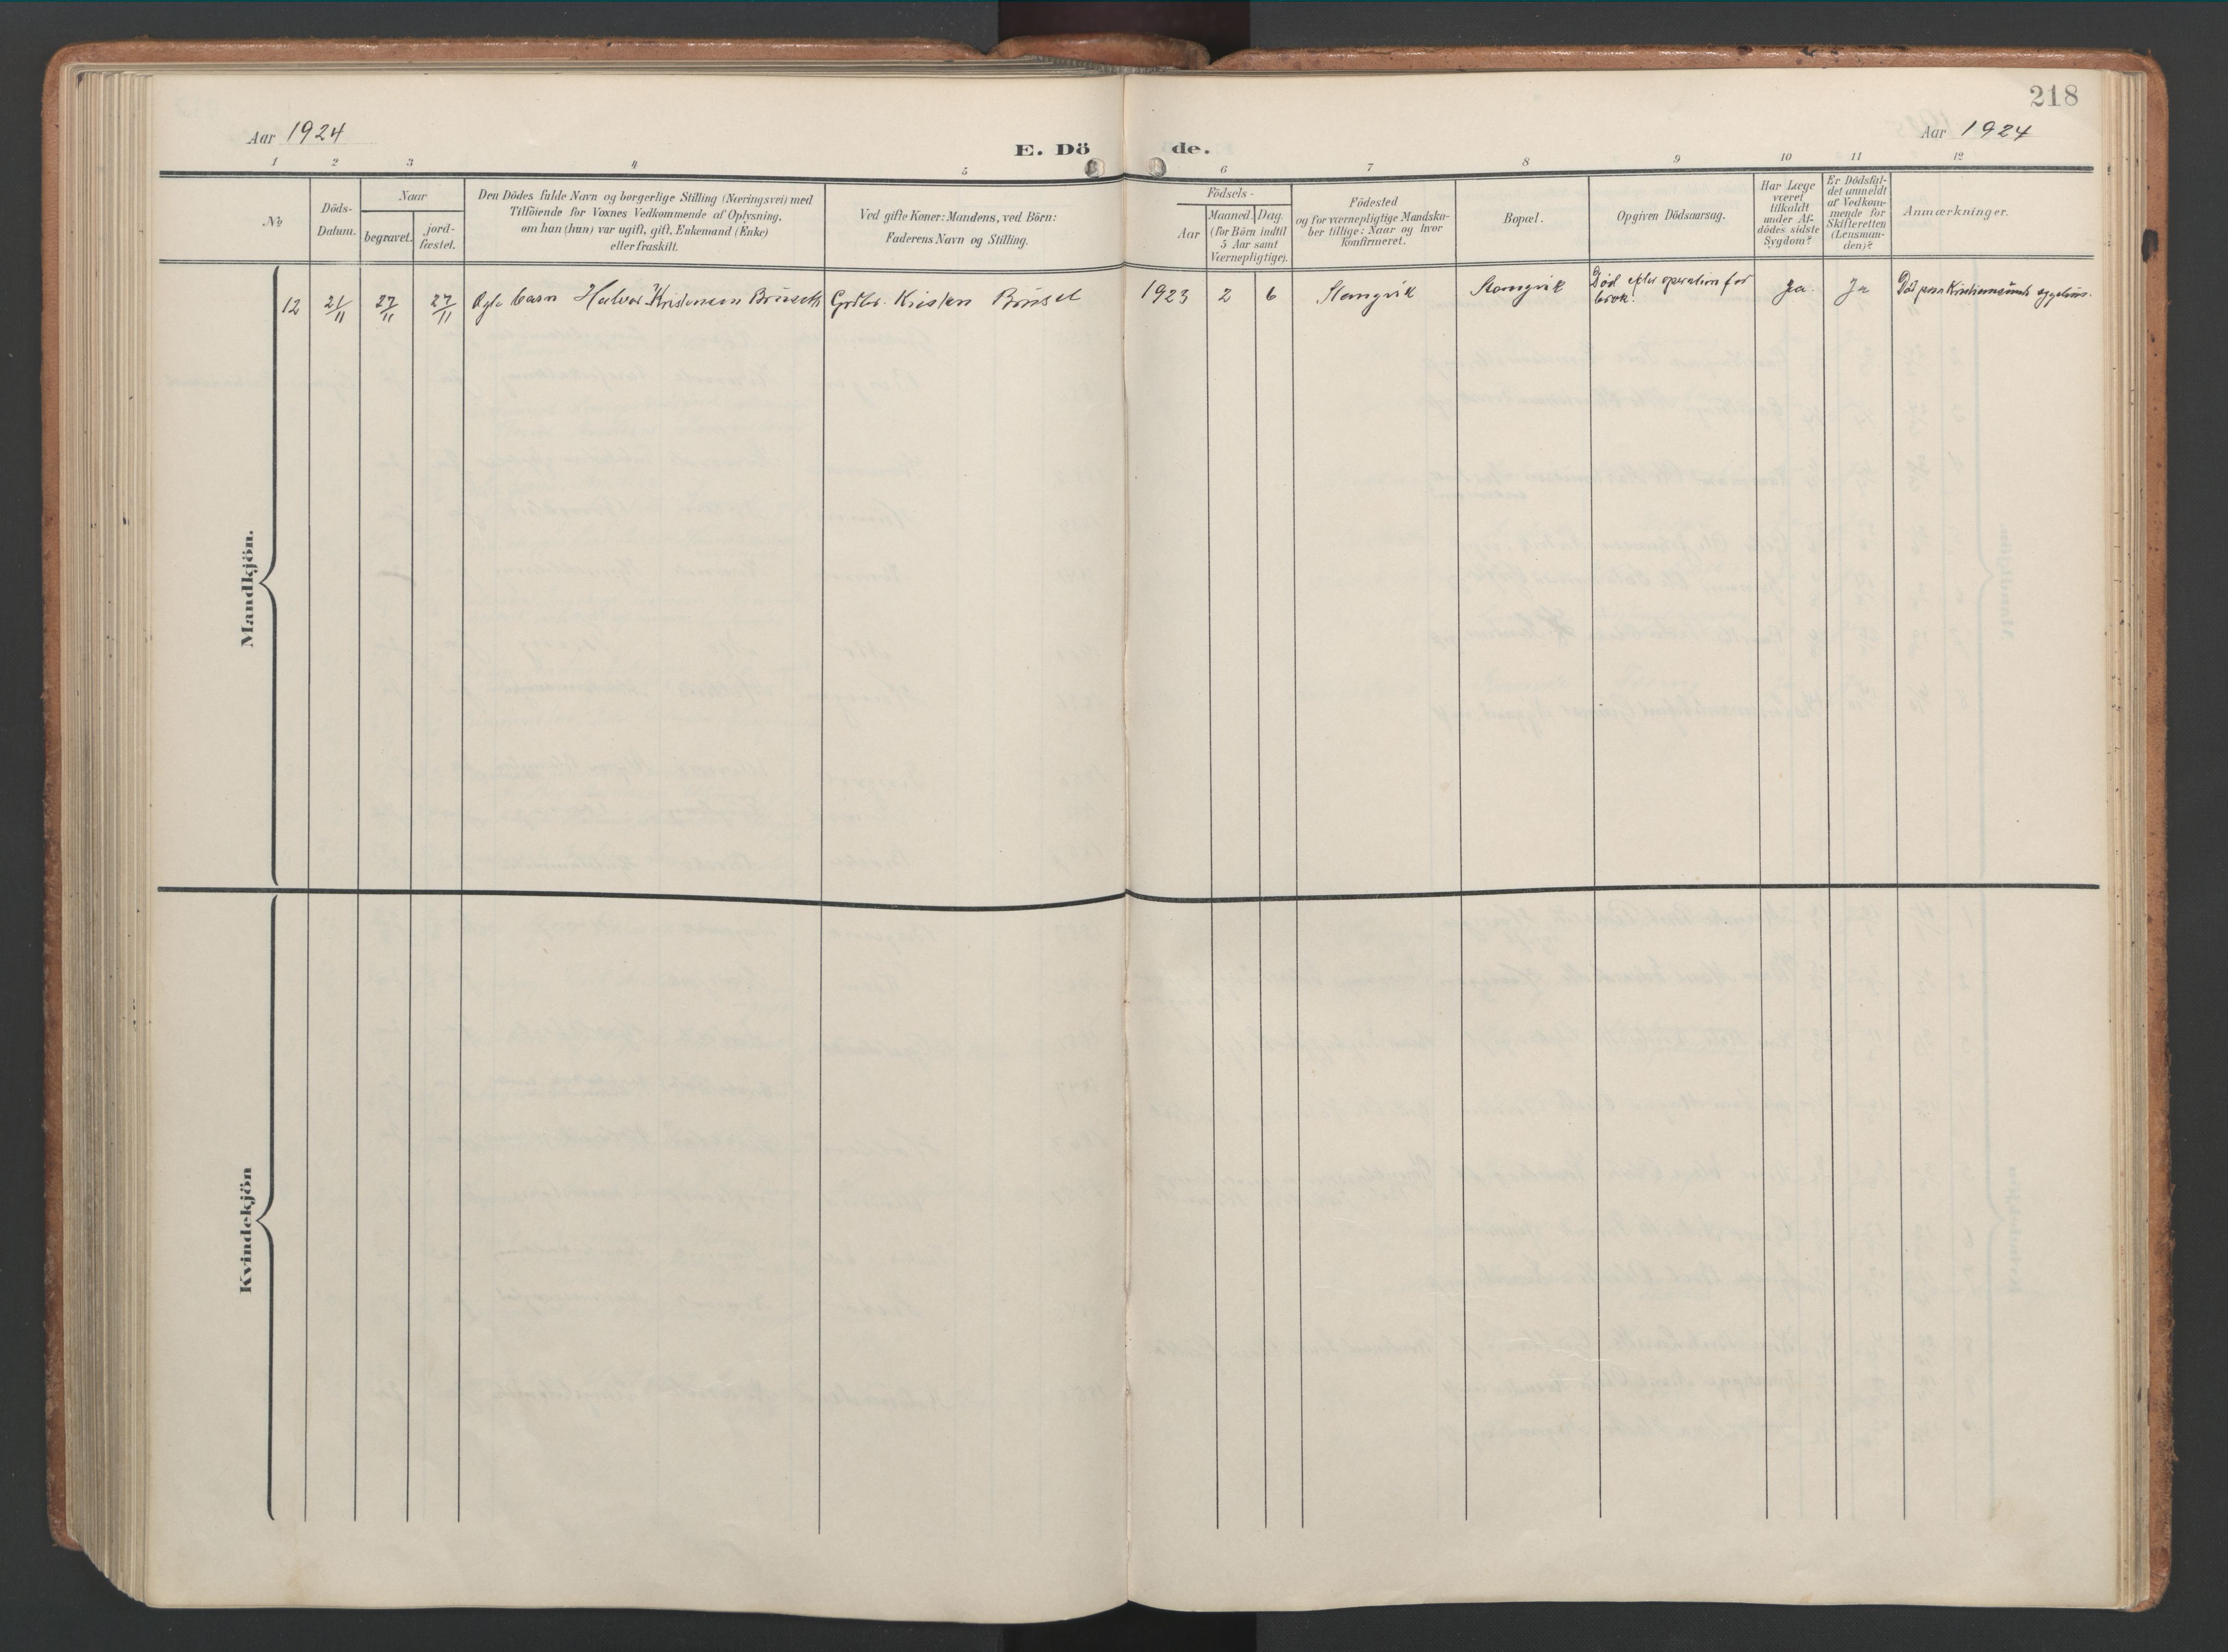 218
Aar 1924
E. Dö de.
Aar 1924
1 2 3 4 5 6 7 8 9 10 11 12
No
Döds-
Datum.
Naar
begravet.
jord-
fæstet.
Den Dödes fulde Navn og borgerlige Stilling (Næringsvei) med
Tilföiende for Voxnes Vedkommende af Oplysning,
om han (hun) var ugift, gift, Enkemand (Enke)
eller fraskilt.
Ved gifte Koner: Mandens, ved Börn:
Faderens Navn og Stilling.
Födsels-
Aar
Maaned. Dag.
(for Börn indtil
5 Aar samt
Værnepligtige).
Födested
og for værnepligtige Mandska-
ber tillige: Naar og hvor
Konfirmeret.
Bopæl.
Opgiven Dödsaarsag.
Har Læge
været
tilkaldt
under Af-
dödes sidste
Sygdom?
Er Dödsfal-
det anmeldt
af Vedkom-
mende for
Skifteretten
(Lensman-
den)?
Anmærkninger.
12 21/11 27/11 27/11 barn Halvor Kristensen Kristen 1923 2 6 Stangvik Stangvik Död efter operation for
brok. Ja. Ja Död paa Kristiansunds
Mandkjön.
Kvindekjön